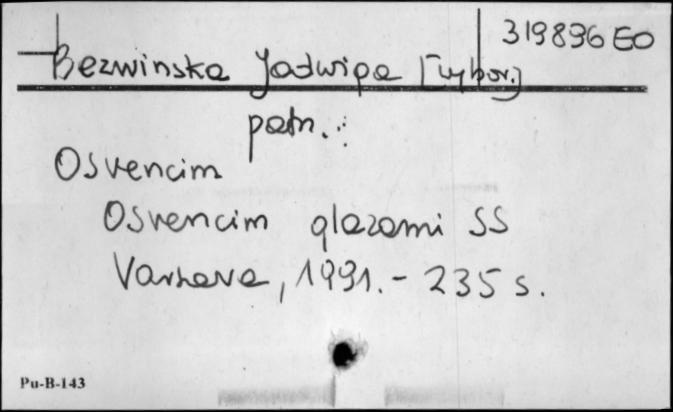 319896 EO
Bezwinska Jadwiga [wybor.]
patrz.:
Osvencim
Osvencim glazami SS
Varšava, 1991. - 235 s.
Pu-B-143